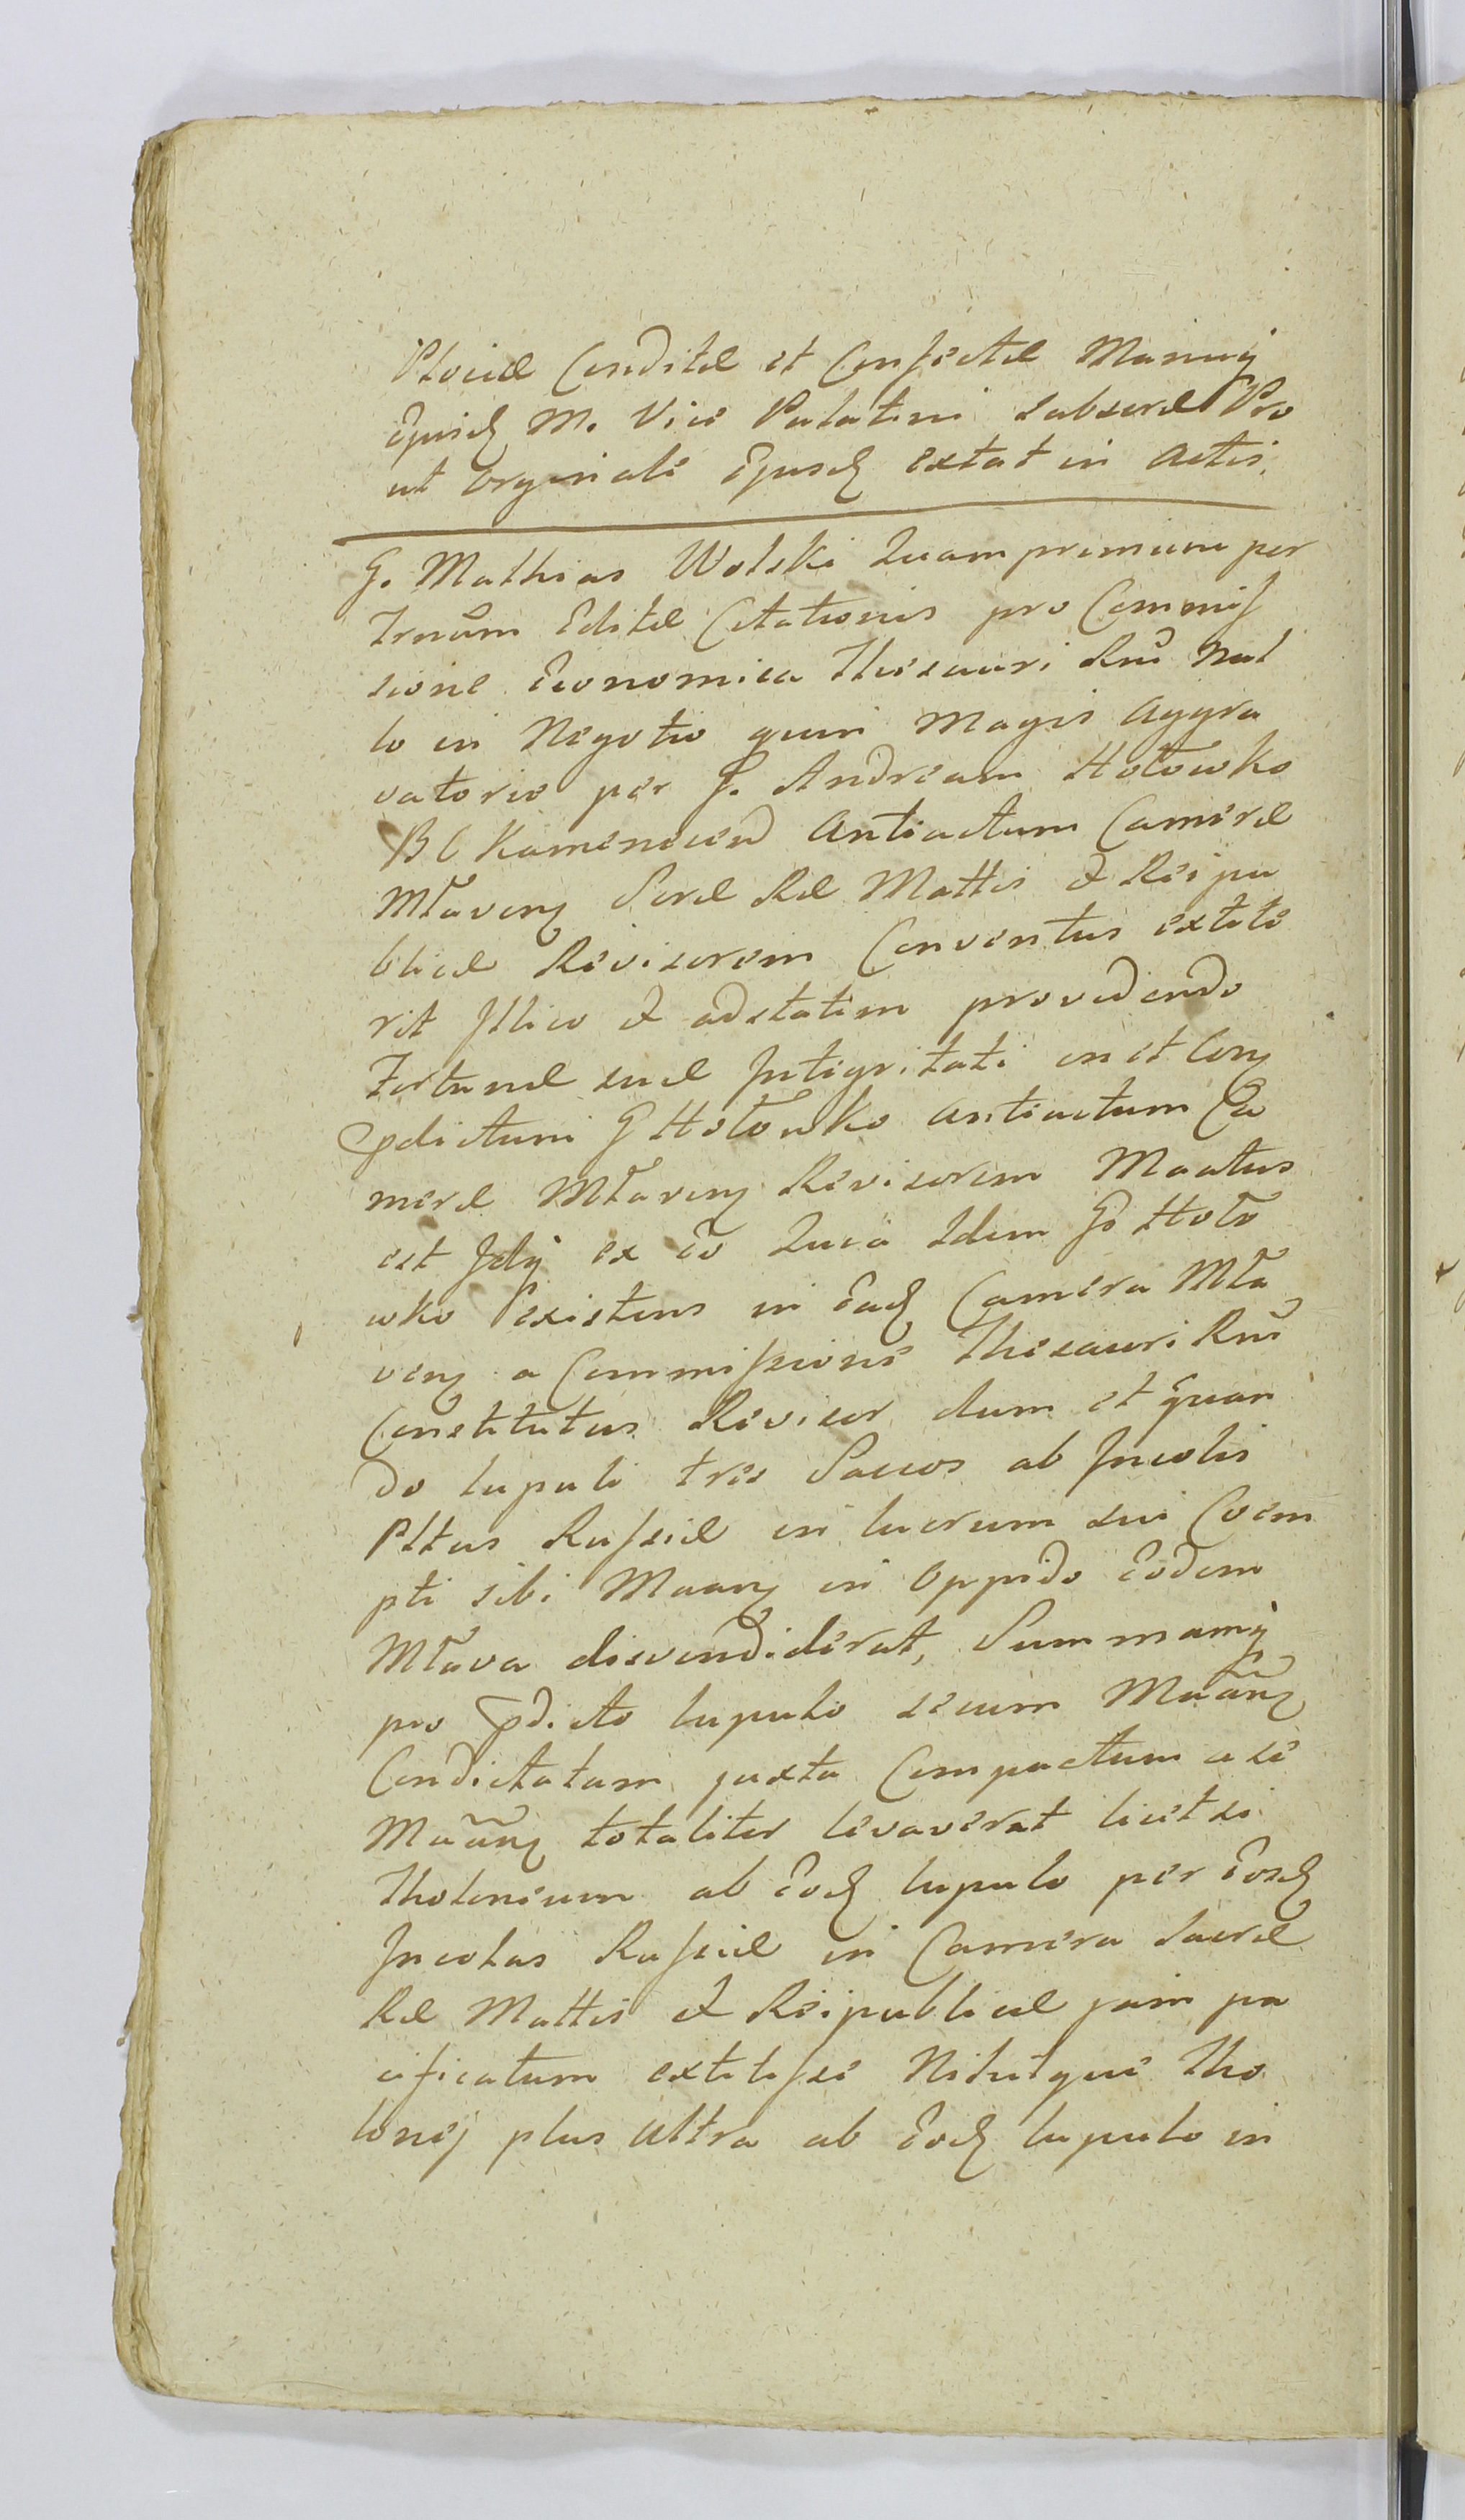 Plociæ Conditæ et Confectæ Manuq
Ejusd M. Vice Palatini subscræ Pro
ut Orginale Ejusd extat in Actis.
G. Mathias Wolski Quamprimum per
Trnũm Editæ Citationis pro Commis
sione Economica Thesauri Rni Nul
lo in Negotio quin Magis Aggra
vatorio per G. Andream Hołowko
BC Kamenecen Antiactum Cameræ
Mławen Scræ Ræ Mattis & Reipu
blicæ Revisorem Conventus extite
rit Illico & adstatim providendo
Fortunæ suæ Integritati in et Con
pdictum G Hołowko Antiactum Ca
meræ Mławen Revisorem Maatus
est Idq ex eo Quia Idem G Hoło
wko existens in Ead Camera Mła
wen a Commissione Thesauri Rni
Constitutus Revisor dum et quan
do lupuli tres Saccos ab Incolis
Pltus Russiæ in lucrum sui Coem
pti sibi Maan in Oppido Eodem
Mława disvendiderat, Summamq
pro pdicto lupulo secum Maan
Condictatam juxta Compactum a se
Maan totaliter levaverat licet si
Tholoneum ab Eod lupulo per Eosd
Incolas Russiæ in Camera Sacræ
Ræ Mattis & Reipublicæ jam pa
cificatum extitisse Nihilque Tho
lonej plus Ultra ab Eod lupulo in